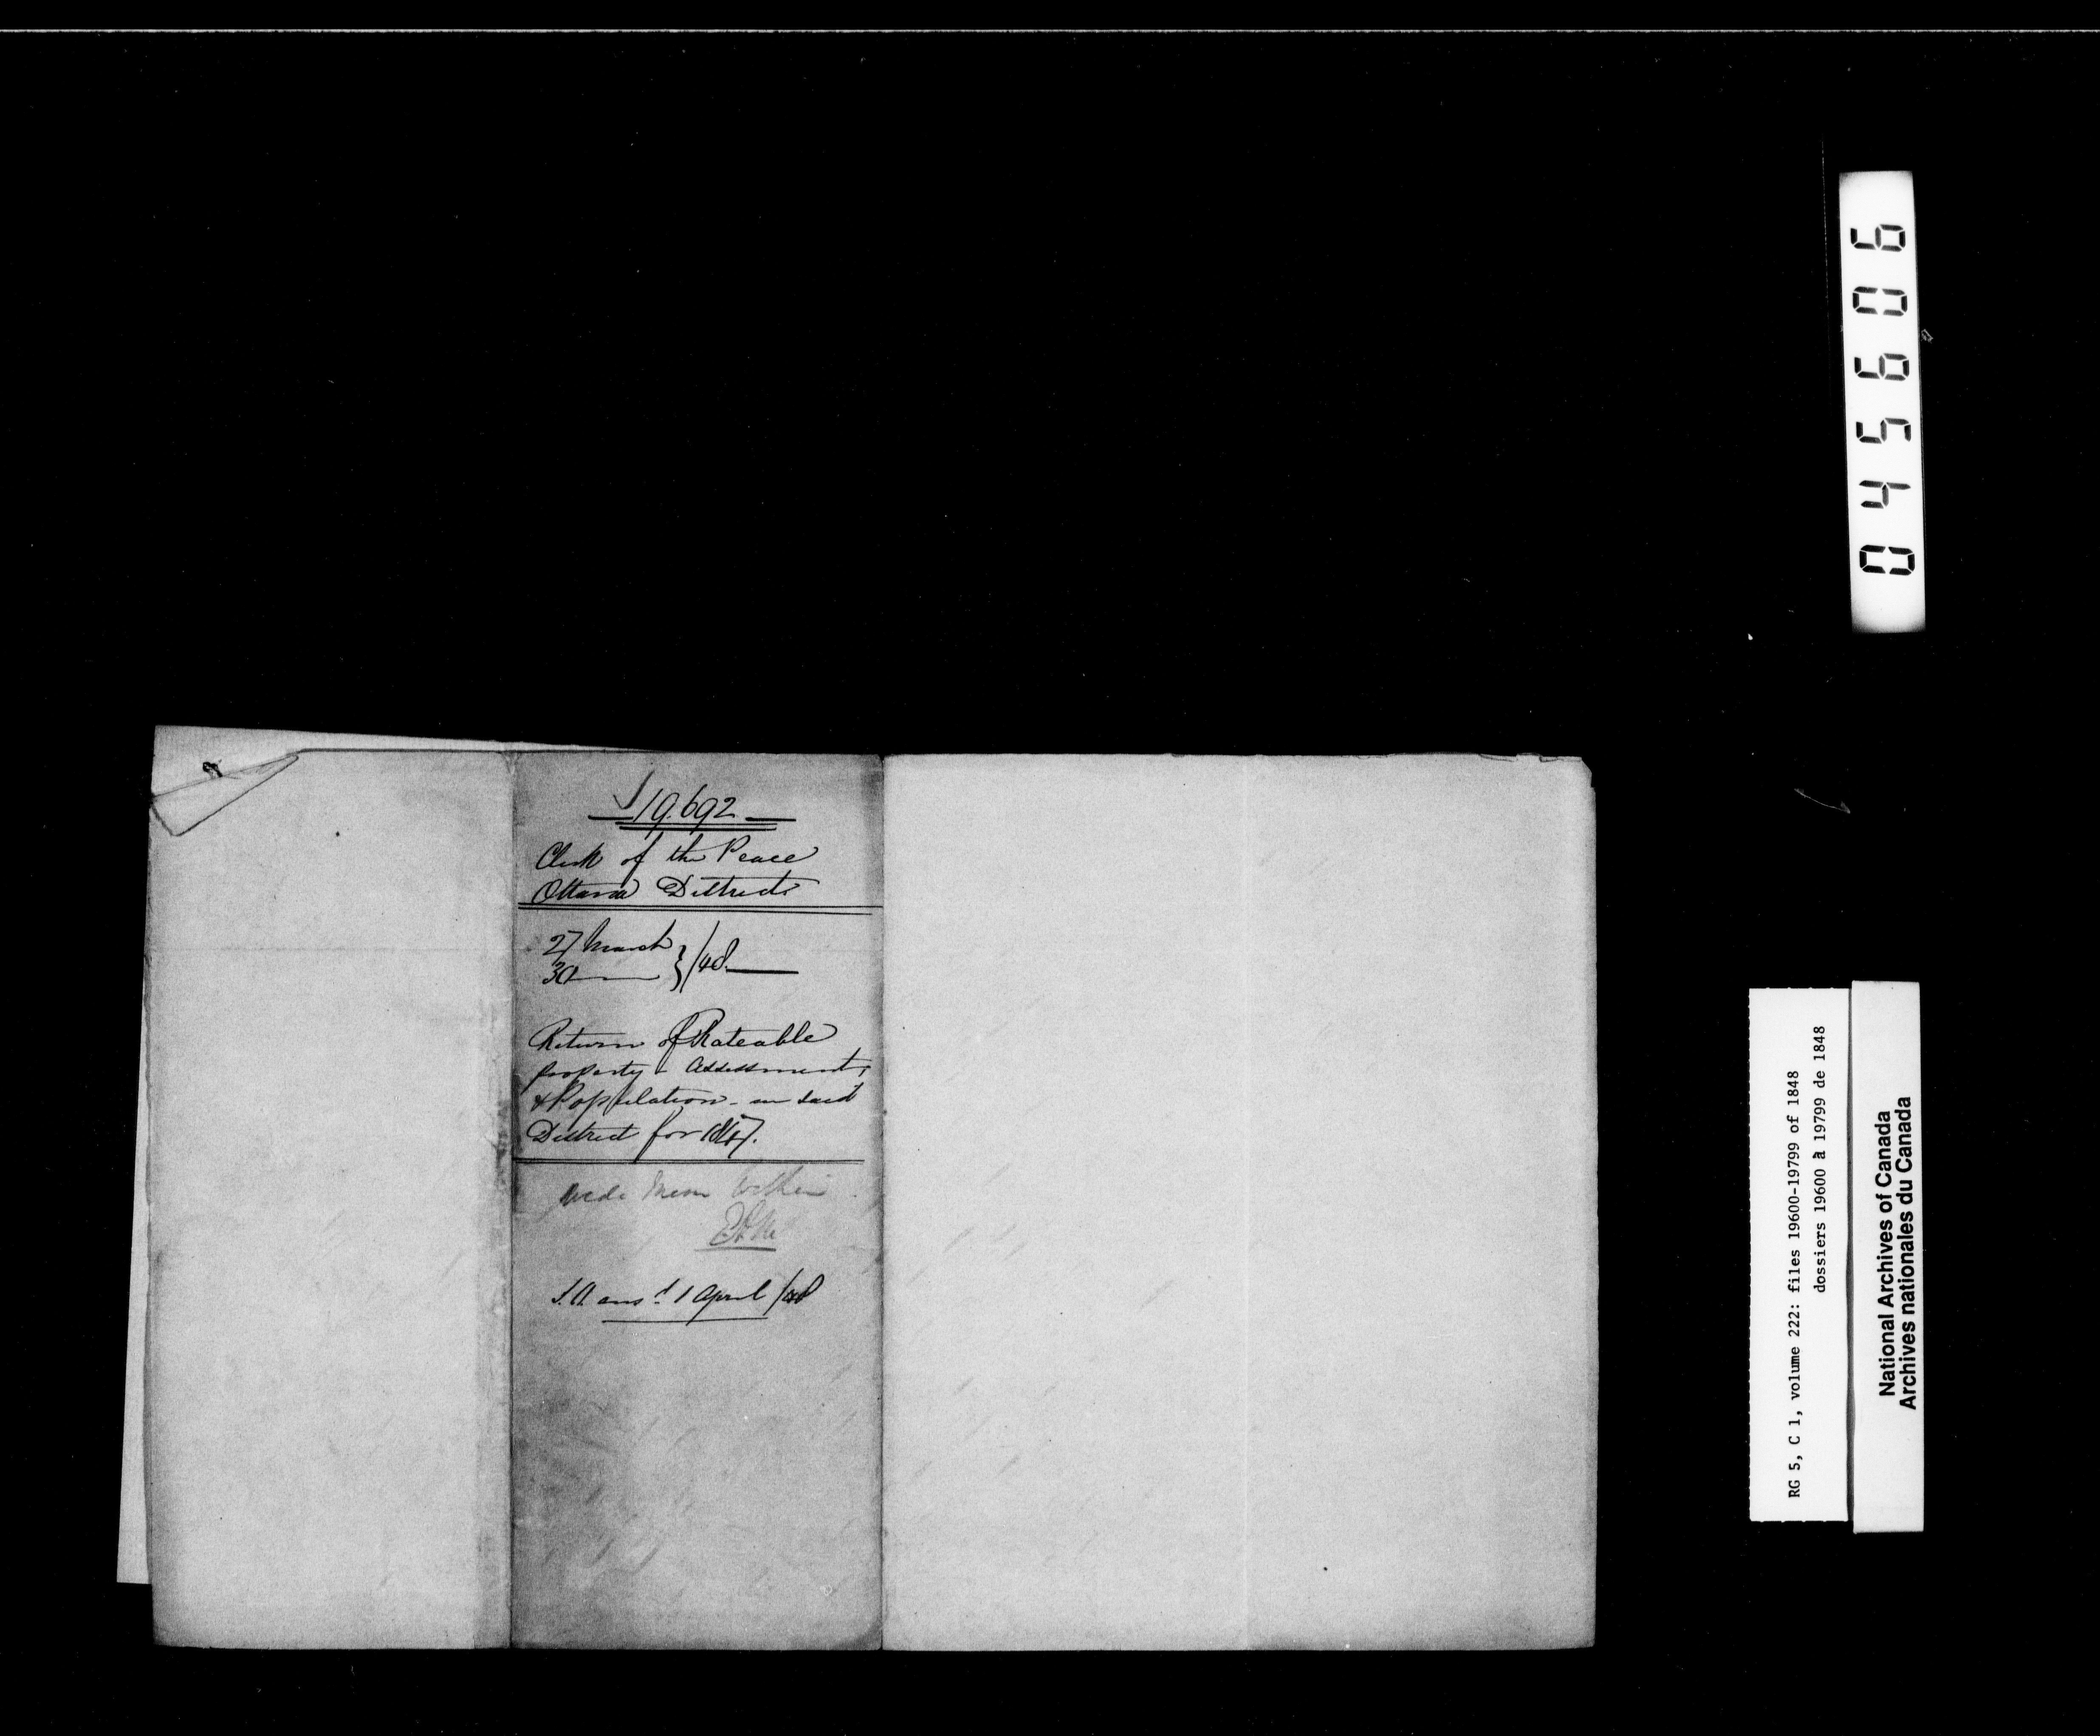 19.692
Clerk of the Peace
Ottawa District
27 March } /48
30
Return of Rateable
property - Assessment,
& Population - in said
District for 1847.
Mem Within
S.A. ans.d 1 April /48
045606
RG 5, C 1, volume 222: files 19600-19799 of 1848
dossiers 19600 à 19799 de 1848
National Archives of Canada
Archives nationales du Canada